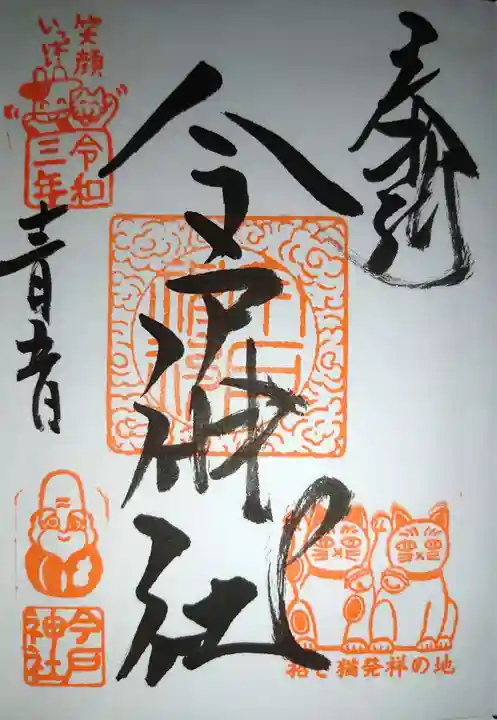 奉拝
今戸神社
笑顔
いっぱい
令和
三年
十一月廿一日
今戸
神社
招き猫発祥の地